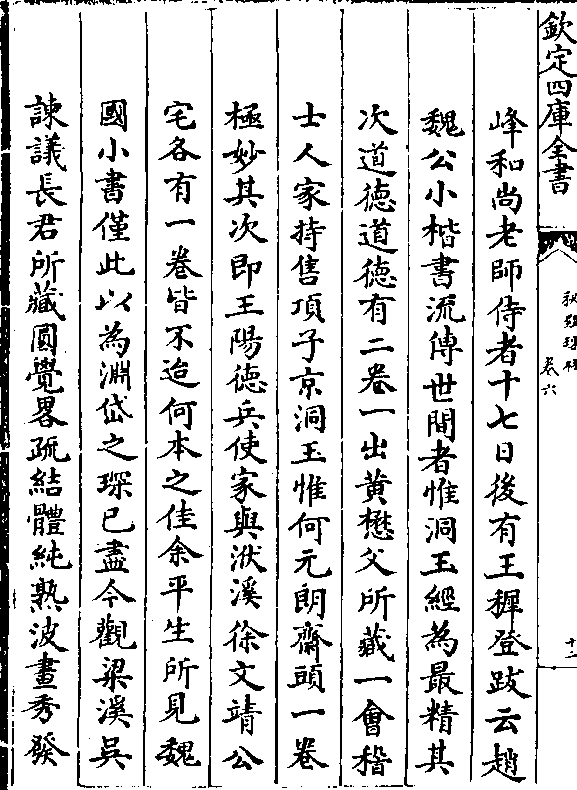 欽定四庫全書
秘殿珠林
卷六
十一
峰和尚老師侍者十七日後有王穉登跋云趙
魏公小楷書流傳世間者惟洞玉經為最精其
次道德道德有二卷一出黄懋父所藏一會稽
士人家持售項子京洞玉惟何元朗齋頭一卷
極妙其次即王陽徳兵使家與洑溪徐文靖公
宅各有一卷皆不迨何本之佳余平生所見魏
國小書僅此以為淵岱之琛已盡今觀梁溪吳
諫議長君所藏圓覺畧疏結體純熟波畫秀發